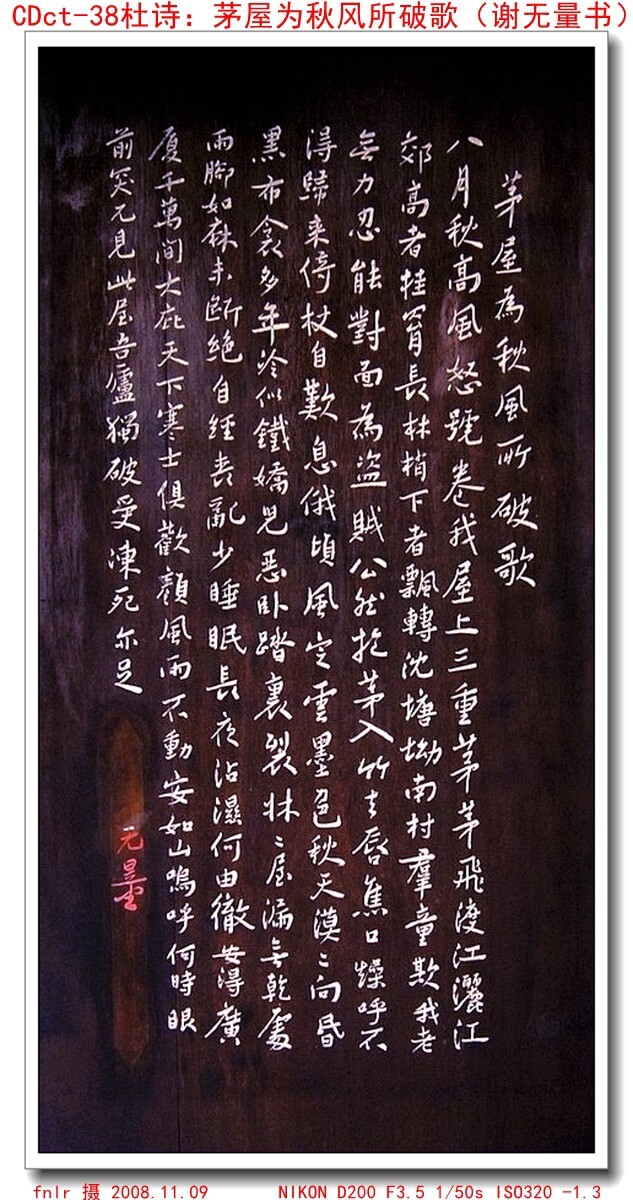 CDct-38杜诗：茅屋为秋风所破歌（谢无量书）
茅屋為秋風所破歌
八月秋高風怒號卷我屋上三重茅茅飛渡江灑江
郊高者挂罥長林梢下者飄轉沈塘坳南村羣童欺我老
無力忍能對面為盜賊公然抱茅入竹去唇焦口燥呼不
得歸来倚杖自歎息俄頃風定雲墨色秋天漠〻向昏
黑布衾多年冷似鐵嬌兒惡卧踏裏裂牀〻屋漏無乾處
雨脚如麻未斷絕自經喪亂少睡眠長夜沾濕何由徹安得廣
厦千萬間大庇天下寒士俱歡顏風雨不動安如山嗚呼何時眼
前突兀見此屋吾廬獨破受凍死亦足
无量
fnlr 摄 2008.11.09
NIKON D200 F3.5 1/50s ISO320 -1.3